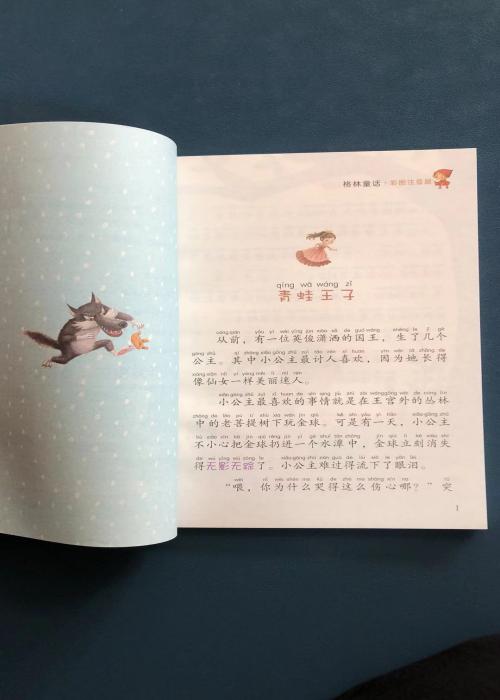 格林童话·彩图注音版
qīng wā wáng zǐ
青蛙王子
从前，有一位英俊潇洒的国王，生了几个
公主。其中小公主最讨人喜欢，因为她长得
像仙女一样美丽迷人。
小公主最喜欢的事情就是在王宫外的丛林
中的老菩提树下玩金球。可是有一天，小公主
不小心把金球扔进一个水潭中，金球立刻消失
得无影无踪了。小公主难过得流下了眼泪。
“喂，你为什么哭得这么伤心哪？”突
1